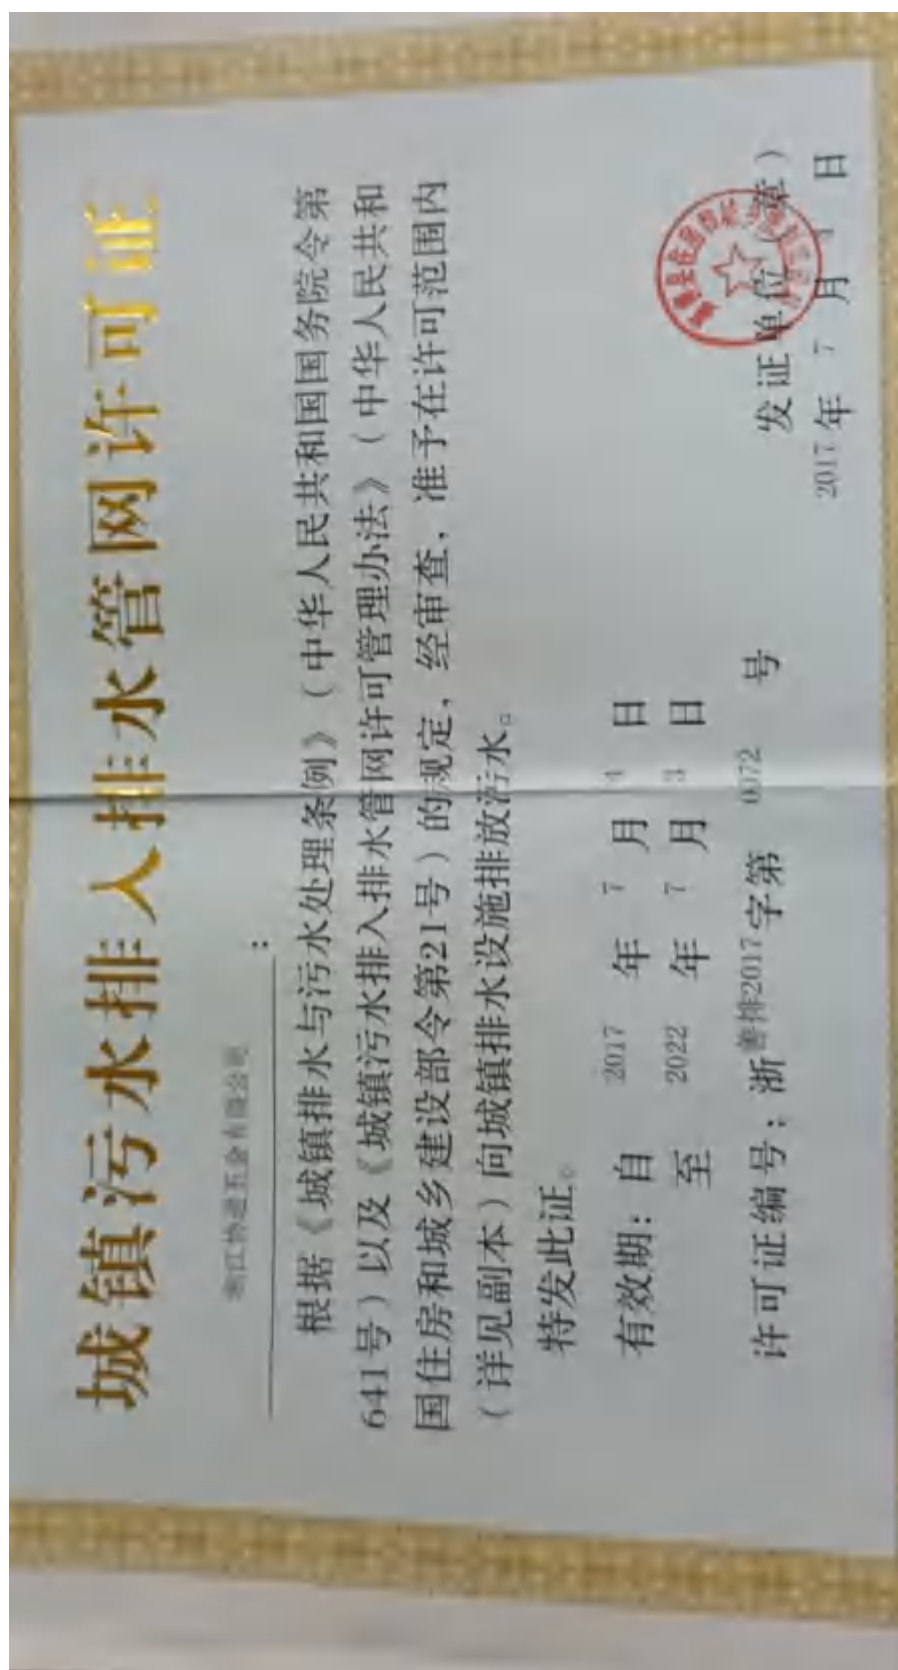 城镇污水排入排水管网许可证
浙江协通五金有限公司：
根据《城镇排水与污水处理条例》（中华人民共和国国务院令第
641号）以及《城镇污水排入排水管网许可管理办法》（中华人民共和
国住房和城乡建设部令第21号）的规定，经审查，准予在许可范围内
（详见副本）向城镇排水设施排放污水。
特发此证。
有效期：自 2017 年 7 月 4 日
至 2022 年 7 月 3 日
许可证编号：浙善排2017字第 0072 号
发证单位（章）
2017 年 7 月 日